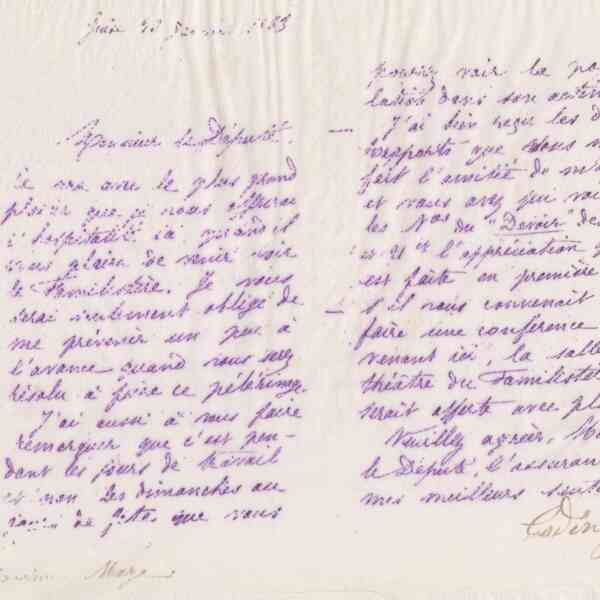 Guise
1883
Monsieur le Député,
Ce sera avec le plus grand
plaisir que je vous offrirai
l'hospitalité ici quand il
vous plaira de venir voir
le Familistère. Je vous
serai seulement obligé de
me prévenir un peu à
l'avance quand vous serez
résolu à faire ce pèlerinage.
J'ai aussi à vous faire
remarquer que c'est pen-
dant les jours de travail
et non les dimanches ou
jours de fêtes que vous
pourrez voir la po
lation dans son activi
J'ai bien reçu les
rapports que vous m'
fait l'amitié de m'
et vous avez pu voi
les Nos du "Devoir" de
et 21 cr l'appréciation
est faite en première
S'il vous convenait
faire une conférence
venant ici, la salle
théâtre du Familistè
serait offerte avec pl
Veuillez agréer, Mo
le Député, l'assuran
mes meilleurs senti
Godin